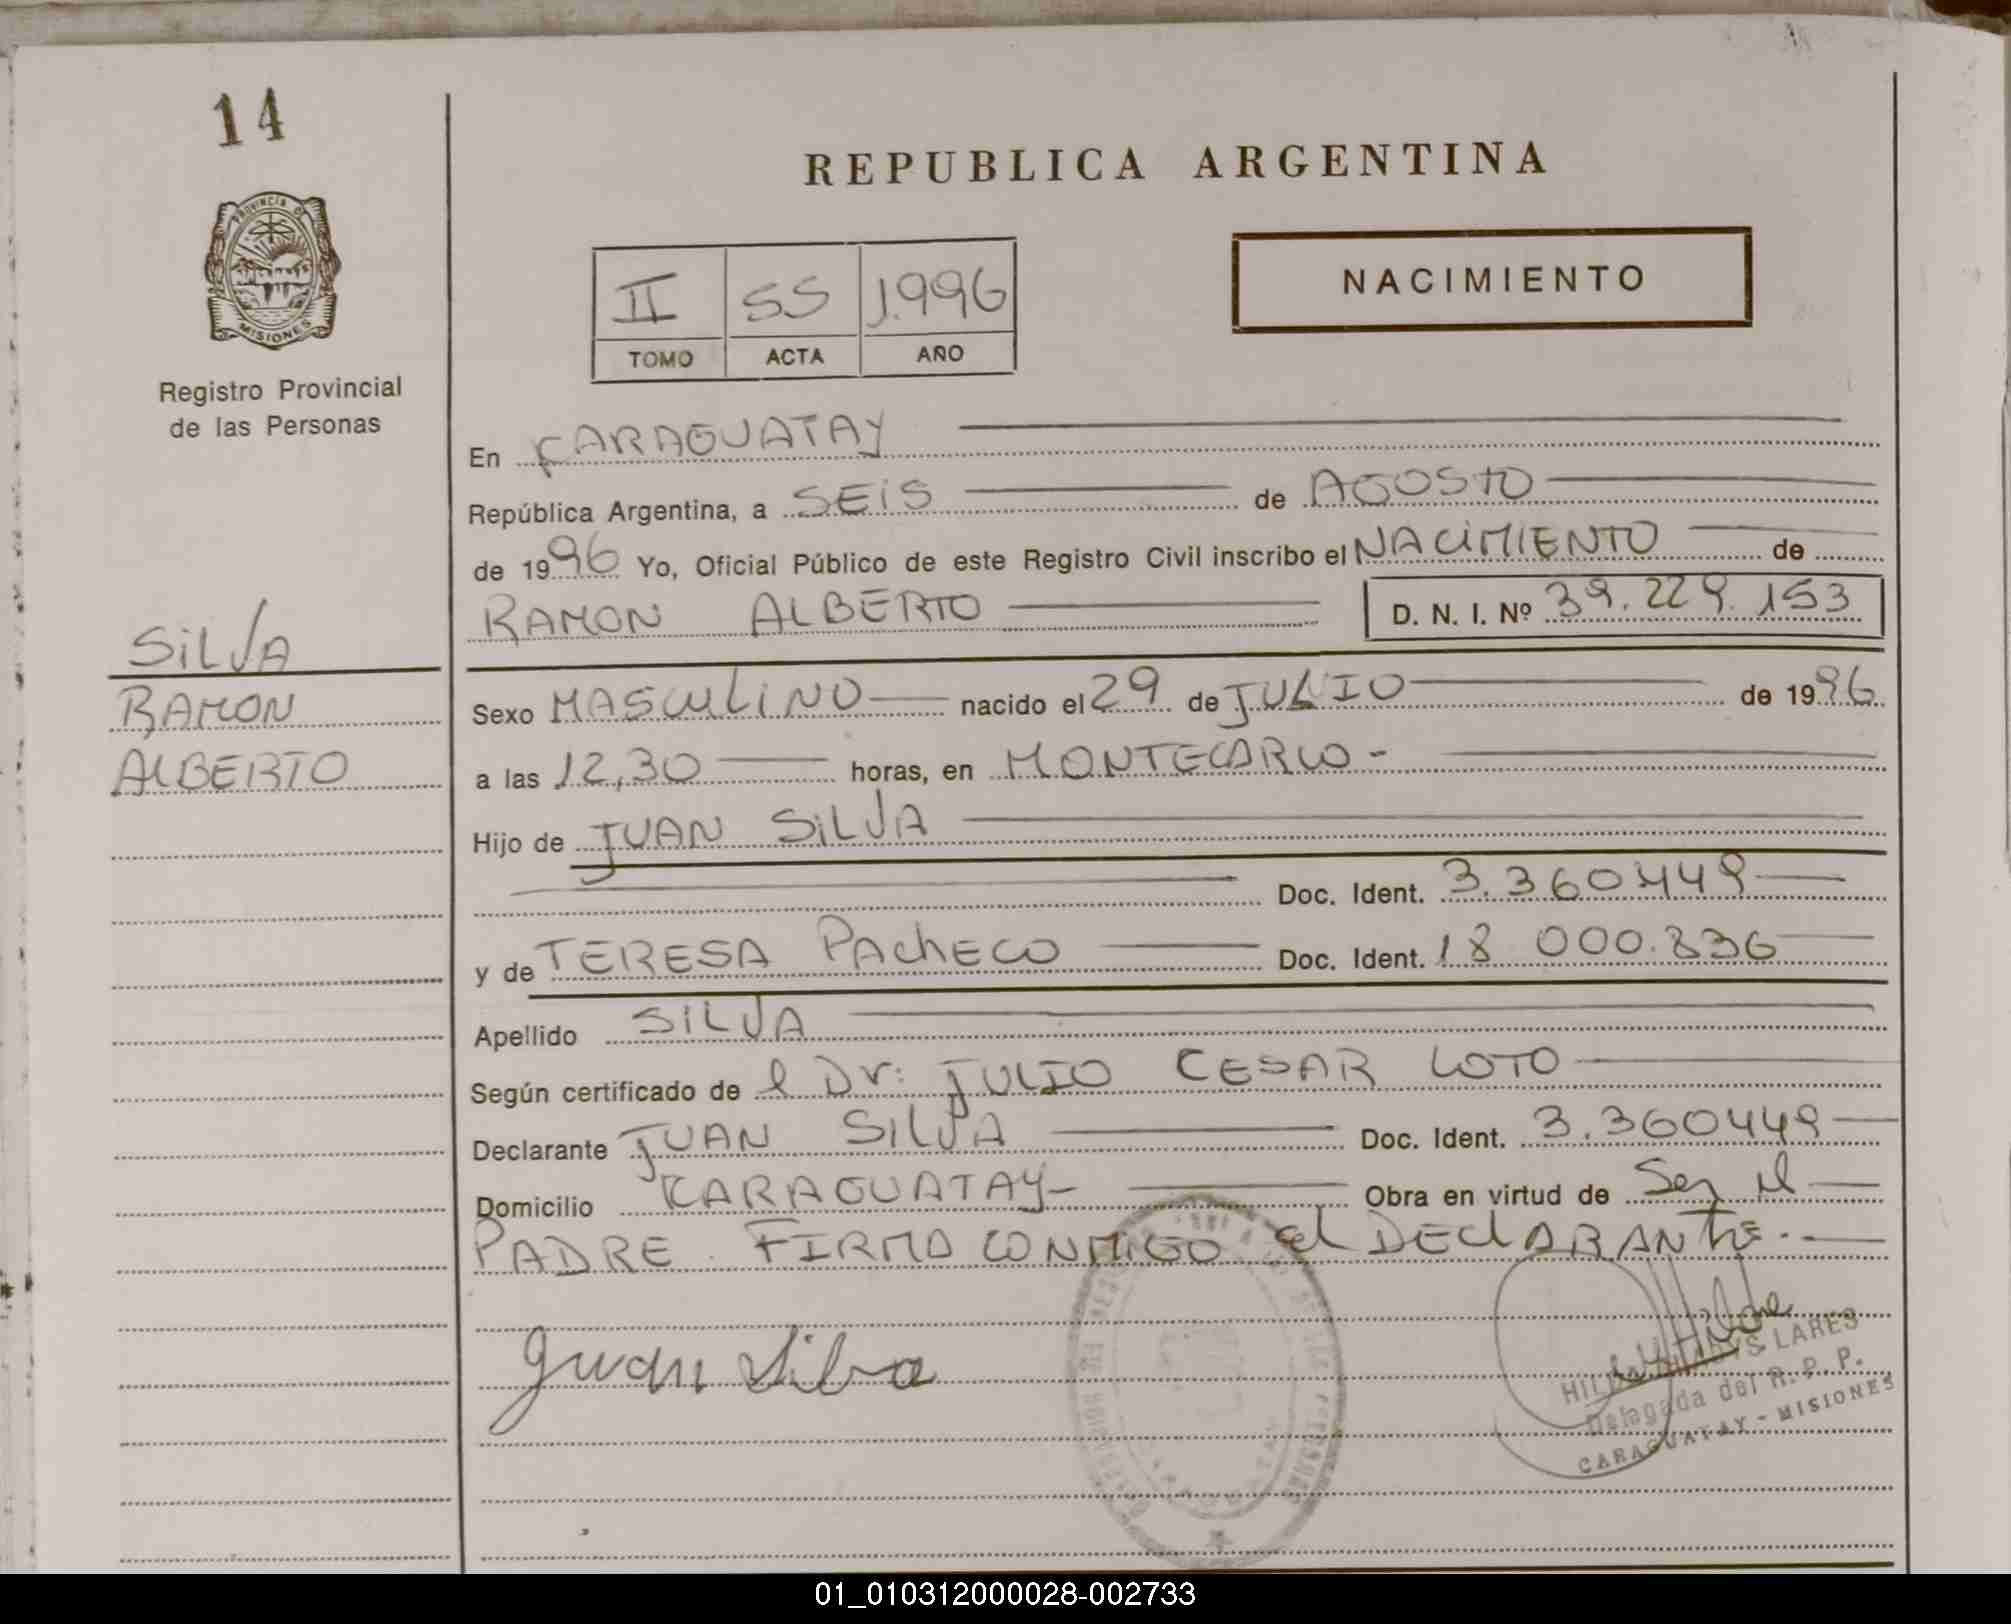 14
PROVINCIA DE
MISIONES
Registro Provincial
de las Personas
SILVA
RAMON
ALBERTO
REPUBLICA ARGENTINA
II 55 1.996
TOMO ACTA AÑO
NACIMIENTO
En KARAGUATAY
República Argentina, a SEIS de AGOSTO
de 1996 Yo, Oficial Público de este Registro Civil inscribo el NACIMIENTO de
RAMON ALBERTO D. N. I. Nº 39.229.153
Sexo MASCULINO nacido el 29 de JULIO de 1996
a las 12,30 horas, en MONTECARLO -
Hijo de JUAN SILVA
Doc. Ident. 3.360449
y de TERESA PACHECO Doc. Ident. 18 000.836
Apellido SILVA
Según certificado de l Dr: JULIO CESAR LOTO
Declarante JUAN SILVA Doc. Ident. 3.360449
Domicilio KARAGUATAY- Obra en virtud de Ser el
PADRE. FIRMA CONMIGO el DEClARANTE.-
Juan Silva
GLADYS LARES
Delegada del R. P. P.
CARAGUATAY - MISIONES
01_010312000028-002733